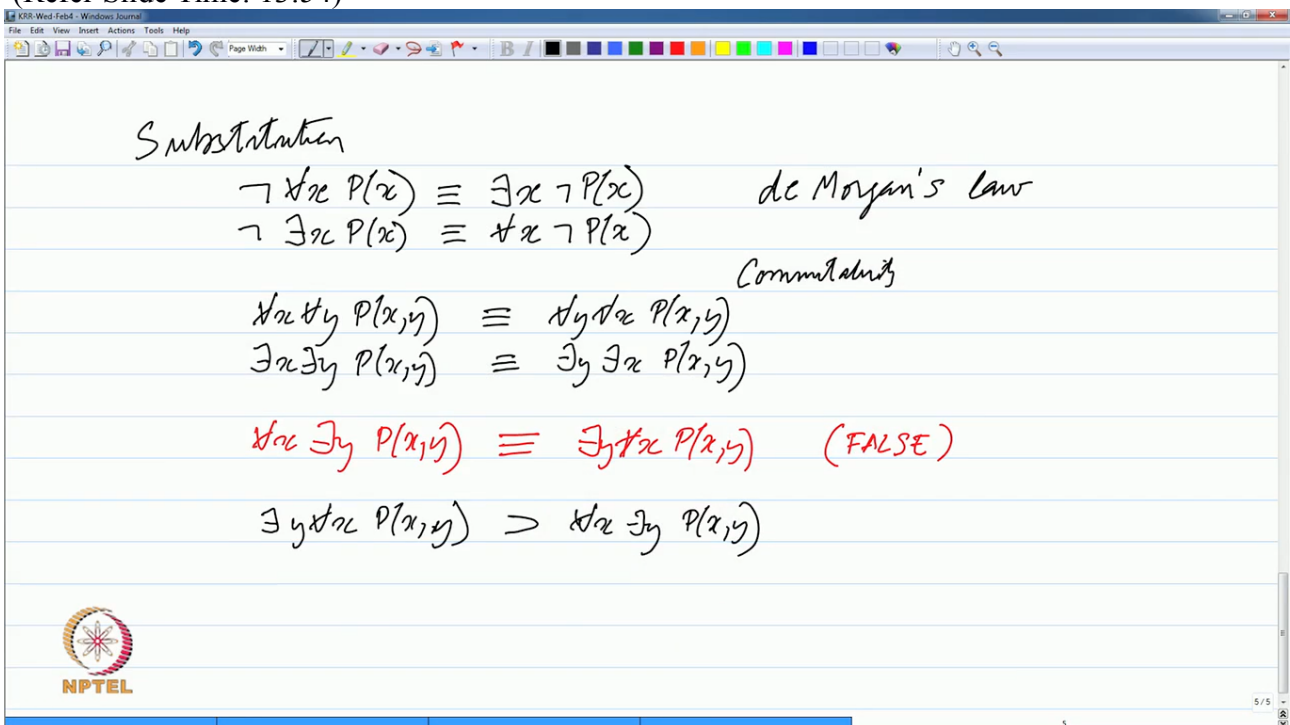 (Refer Slide Time: 13:34)
KRR-Wed-Feb4 - Windows Journal
File Edit View Insert Actions Tools Help
Page Width
B I
Substitution
¬ ∀x P(x) ≡ ∃x ¬ P(x) de Morgan's law
¬ ∃x P(x) ≡ ∀x ¬ P(x)
Commutativity
∀x ∀y P(x,y) ≡ ∀y ∀x P(x,y)
∃x ∃y P(x,y) ≡ ∃y ∃x P(x,y)
∀x ∃y P(x,y) ≡ ∃y ∀x P(x,y) (FALSE)
∃y ∀x P(x,y) ⊃ ∀x ∃y P(x,y)
NPTEL
5/5
5